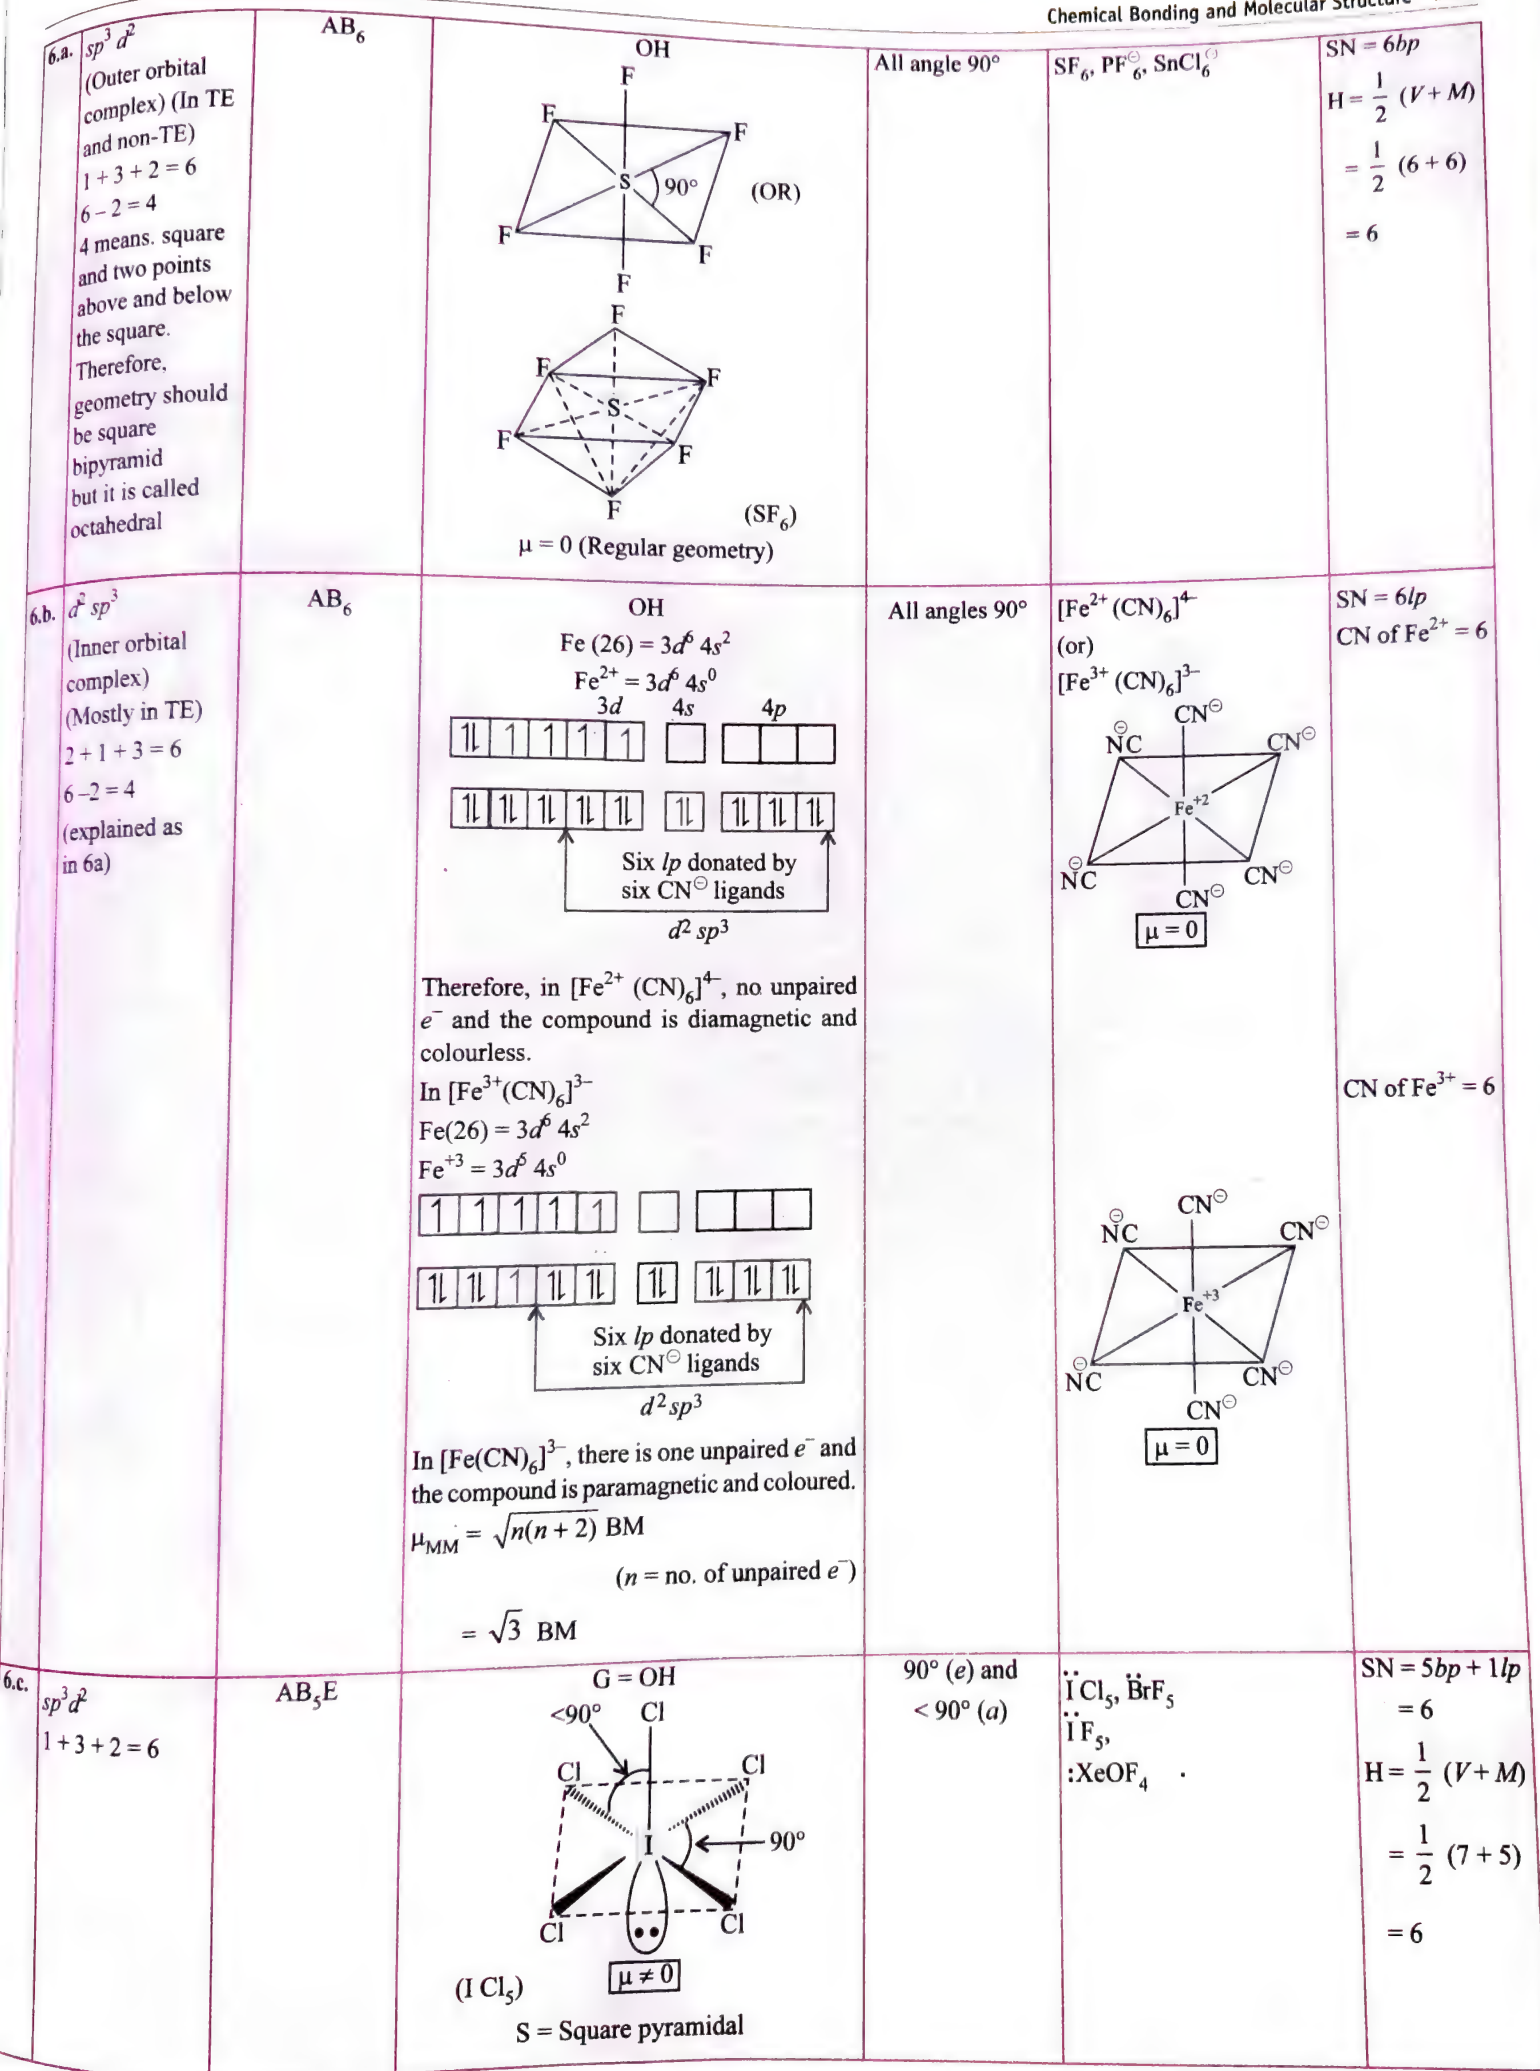 Chemical Bonding and Molecular Structure
6.a.
sp³ d²
(Outer orbital
complex) (In TE
and non-TE)
1 + 3 + 2 = 6
6 – 2 = 4
4 means. square
and two points
above and below
the square.
Therefore,
geometry should
be square
bipyramid
but it is called
octahedral
AB₆
OH
F
F
F
S
90°
(OR)
F
F
F
F
F
F
S
F
F
F
(SF₆)
μ = 0 (Regular geometry)
All angle 90°
SF₆, PF₆⊖, SnCl₆
SN = 6bp
H = 1/2 (V + M)
= 1/2 (6 + 6)
= 6
6.b.
d² sp³
(Inner orbital
complex)
(Mostly in TE)
2 + 1 + 3 = 6
6 –2 = 4
(explained as
in 6a)
AB₆
OH
Fe (26) = 3d⁶ 4s²
Fe²⁺ = 3d⁶ 4s⁰
3d 4s 4p
⥮ 1 1 1 1
⥮ ⥮ ⥮ ⥮ ⥮ ⥮ ⥮ ⥮ ⥮
Six lp donated by
six CN⊖ ligands
d² sp³
Therefore, in [Fe²⁺ (CN)₆]⁴⁻, no unpaired
e⁻ and the compound is diamagnetic and
colourless.
In [Fe³⁺(CN)₆]³⁻
Fe(26) = 3d⁶ 4s²
Fe⁺³ = 3d⁵ 4s⁰
1 1 1 1 1
⥮ ⥮ 1 ⥮ ⥮ ⥮ ⥮ ⥮ ⥮
Six lp donated by
six CN⊖ ligands
d² sp³
In [Fe(CN)₆]³⁻, there is one unpaired e⁻ and
the compound is paramagnetic and coloured.
μMM = √n(n + 2) BM
(n = no. of unpaired e⁻)
= √3 BM
All angles 90°
[Fe²⁺ (CN)₆]⁴⁻
(or)
[Fe³⁺ (CN)₆]³⁻
CN⊖
⊖NC
CN⊖
Fe⁺²
⊖NC
CN⊖
CN⊖
μ = 0
CN⊖
⊖NC
CN⊖
Fe⁺³
⊖NC
CN⊖
CN⊖
μ = 0
SN = 6lp
CN of Fe²⁺ = 6
CN of Fe³⁺ = 6
6.c.
sp³d²
1 + 3 + 2 = 6
AB₅E
G = OH
<90° Cl
Cl
Cl
I
90°
Cl
Cl
(I Cl₅)
μ ≠ 0
S = Square pyramidal
90° (e) and
< 90° (a)
ÏCl₅, B̈rF₅
ÏF₅,
:XeOF₄
SN = 5bp + 1lp
= 6
H = 1/2 (V + M)
= 1/2 (7 + 5)
= 6